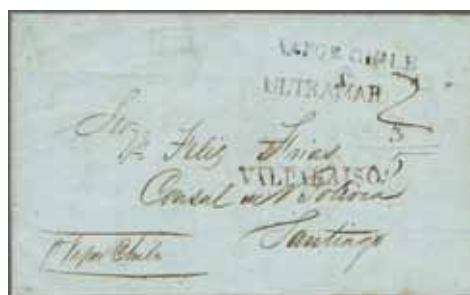 VAPOR CHILE
ULTRAMAR
Sor
Dn Feliz Frias
VALPARAISO
Consul
Santiago
Vapor Chile